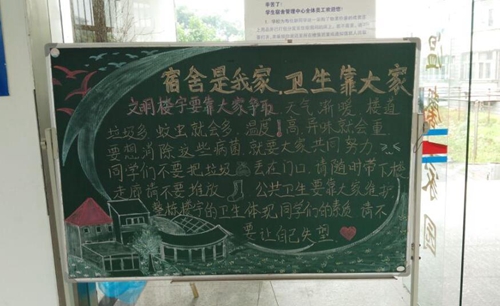 辛苦了!
学生宿舍管理中心全体员工欢迎您!
宿舍是我家,卫生靠大家
文明楼宇要靠大家争取 天气渐暖 楼道
垃圾多 蚊虫就会多 温度高,异味就会重
要想消除这些病菌,就要大家共同努力
同学们不要把垃圾丢在门口 请随时带下楼
走廊请不要堆放 公共卫生要靠大家维护
整栋楼宇的卫生体现同学们的素质 请不
要让自己失望
家园